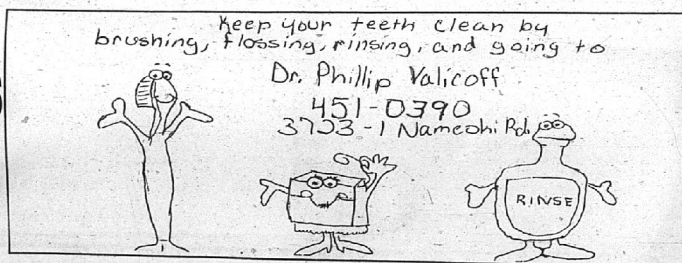 Keep your teeth clean by
brushing, flossing, rinsing, and going to
Dr. Phillip Valicoff
451-0390
3723-1 Nameoki Rd.
RINSE